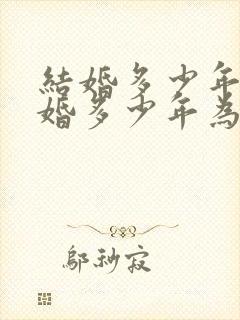 結婚多少年
婚多少年為
鄔秘寂